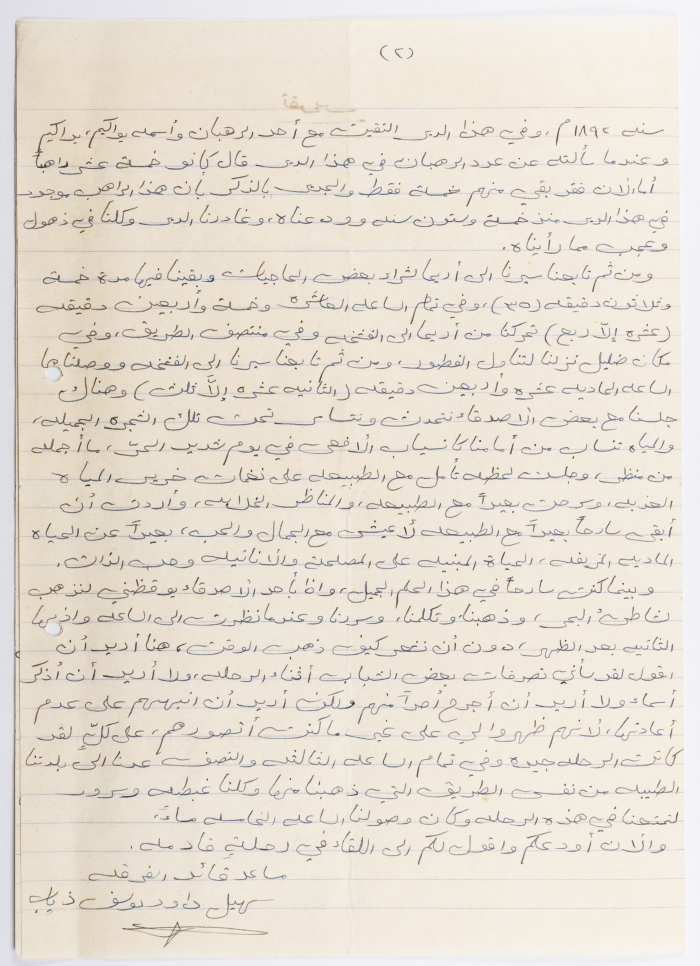 (٢)
سنه ١٨٩٢م، وفي هذا الدير التقيت مع أحد الرهبان وأسمه يواكيم، يواكيم
وعندما سألته عن عدد الرهبان في هذا الدير قال كانو خمسة عشر راهباً
أما الان فقد بقي منهم خمسة فقط والجدير بالذكر بان هذا الراهب موجود
في هذا الدير منذ خمسة وستون سنه وودعناه، وغادرنا الدير وكلنا في ذهول
وعجب مما رأيناه.
ومن ثم تابعنا سيرنا الى أريحا لشراء بعض الحاجيات وبقينا فيها مدة خمسة
وثلاثون دقيقه (٣٥)، وفي تمام الساعه العاشره وخمسة وأربعين دقيقه
(عشره إلاّ ربع) تحركنا من أريحا الى الفشخه وفي منتصف الطريق، وفي
مكان ضليل نزلنا لتناول الفطور، ومن ثم تابعنا سيرنا الى الفشخه ووصلناها
الساعه الحاديه عشره وأربعين دقيقه (الثانيه عشره إلاَّ ثلث) وهناك
جلسنا مع بعض الاصدقاء نتحدث ونتسامر تحت تلك الشجره الجميله،
والمياه تنساب من أمامنا كانسياب الافعى في يوم شديد الحرّ، ما أجمله
من منظر، وجلست لحظه تأمل مع الطبيعه على نغمات خرير المياه
العذبه، وسرحت بعيداً مع الطبيعه، والمناظر الخلابه، وأردت أن
أبقى سارحاً بعيداً مع الطبيعه لأعيش مع الجمال والحب، بعيداً عن الحياه
الماديه المزيفه، الحياة المبنيه على المصلحة والأنانيه وحب الذات.
وبينما كنت سارحاً في هذا الحلم الجميل، واذا بأحد الاصدقاء يوقظني لنذهب
لشاطئ البحر، وذهبنا وتكلمنا، وسرونا وعندما نظرت الى الساعه واذ بها
الثانيه بعد الظهر، دون أن نشعر كيف ذهب الوقت، هنا أريد أن
اقول لقد سأني تصرفات بعض الشباب أثناء الرحله، ولا أريد أن أذكر
أسماء ولا أريد أن أجرح أحداً منهم ولكن أريد أن انبههم على عدم
أعادتها، لانهم ظهروا لي على غير ما كنت أتصورهم، على كلٍّ لقد
كانت الرحله جيده وفي تمام الساعه الثالثه والنصف عدنا الى بلدتنا
الطيبه من نفس الطريق التي ذهبنا منها وكلنا غبطه وسرور
لنجاحنا في هذه الرحله وكان وصولنا الساعه الخامسه مساءً.
والان أودعكم واقول لكم الى اللقاء في رحلةٍ قادمه.
مساعد قائد الفرقه
سهيل داود يوسف ذياب